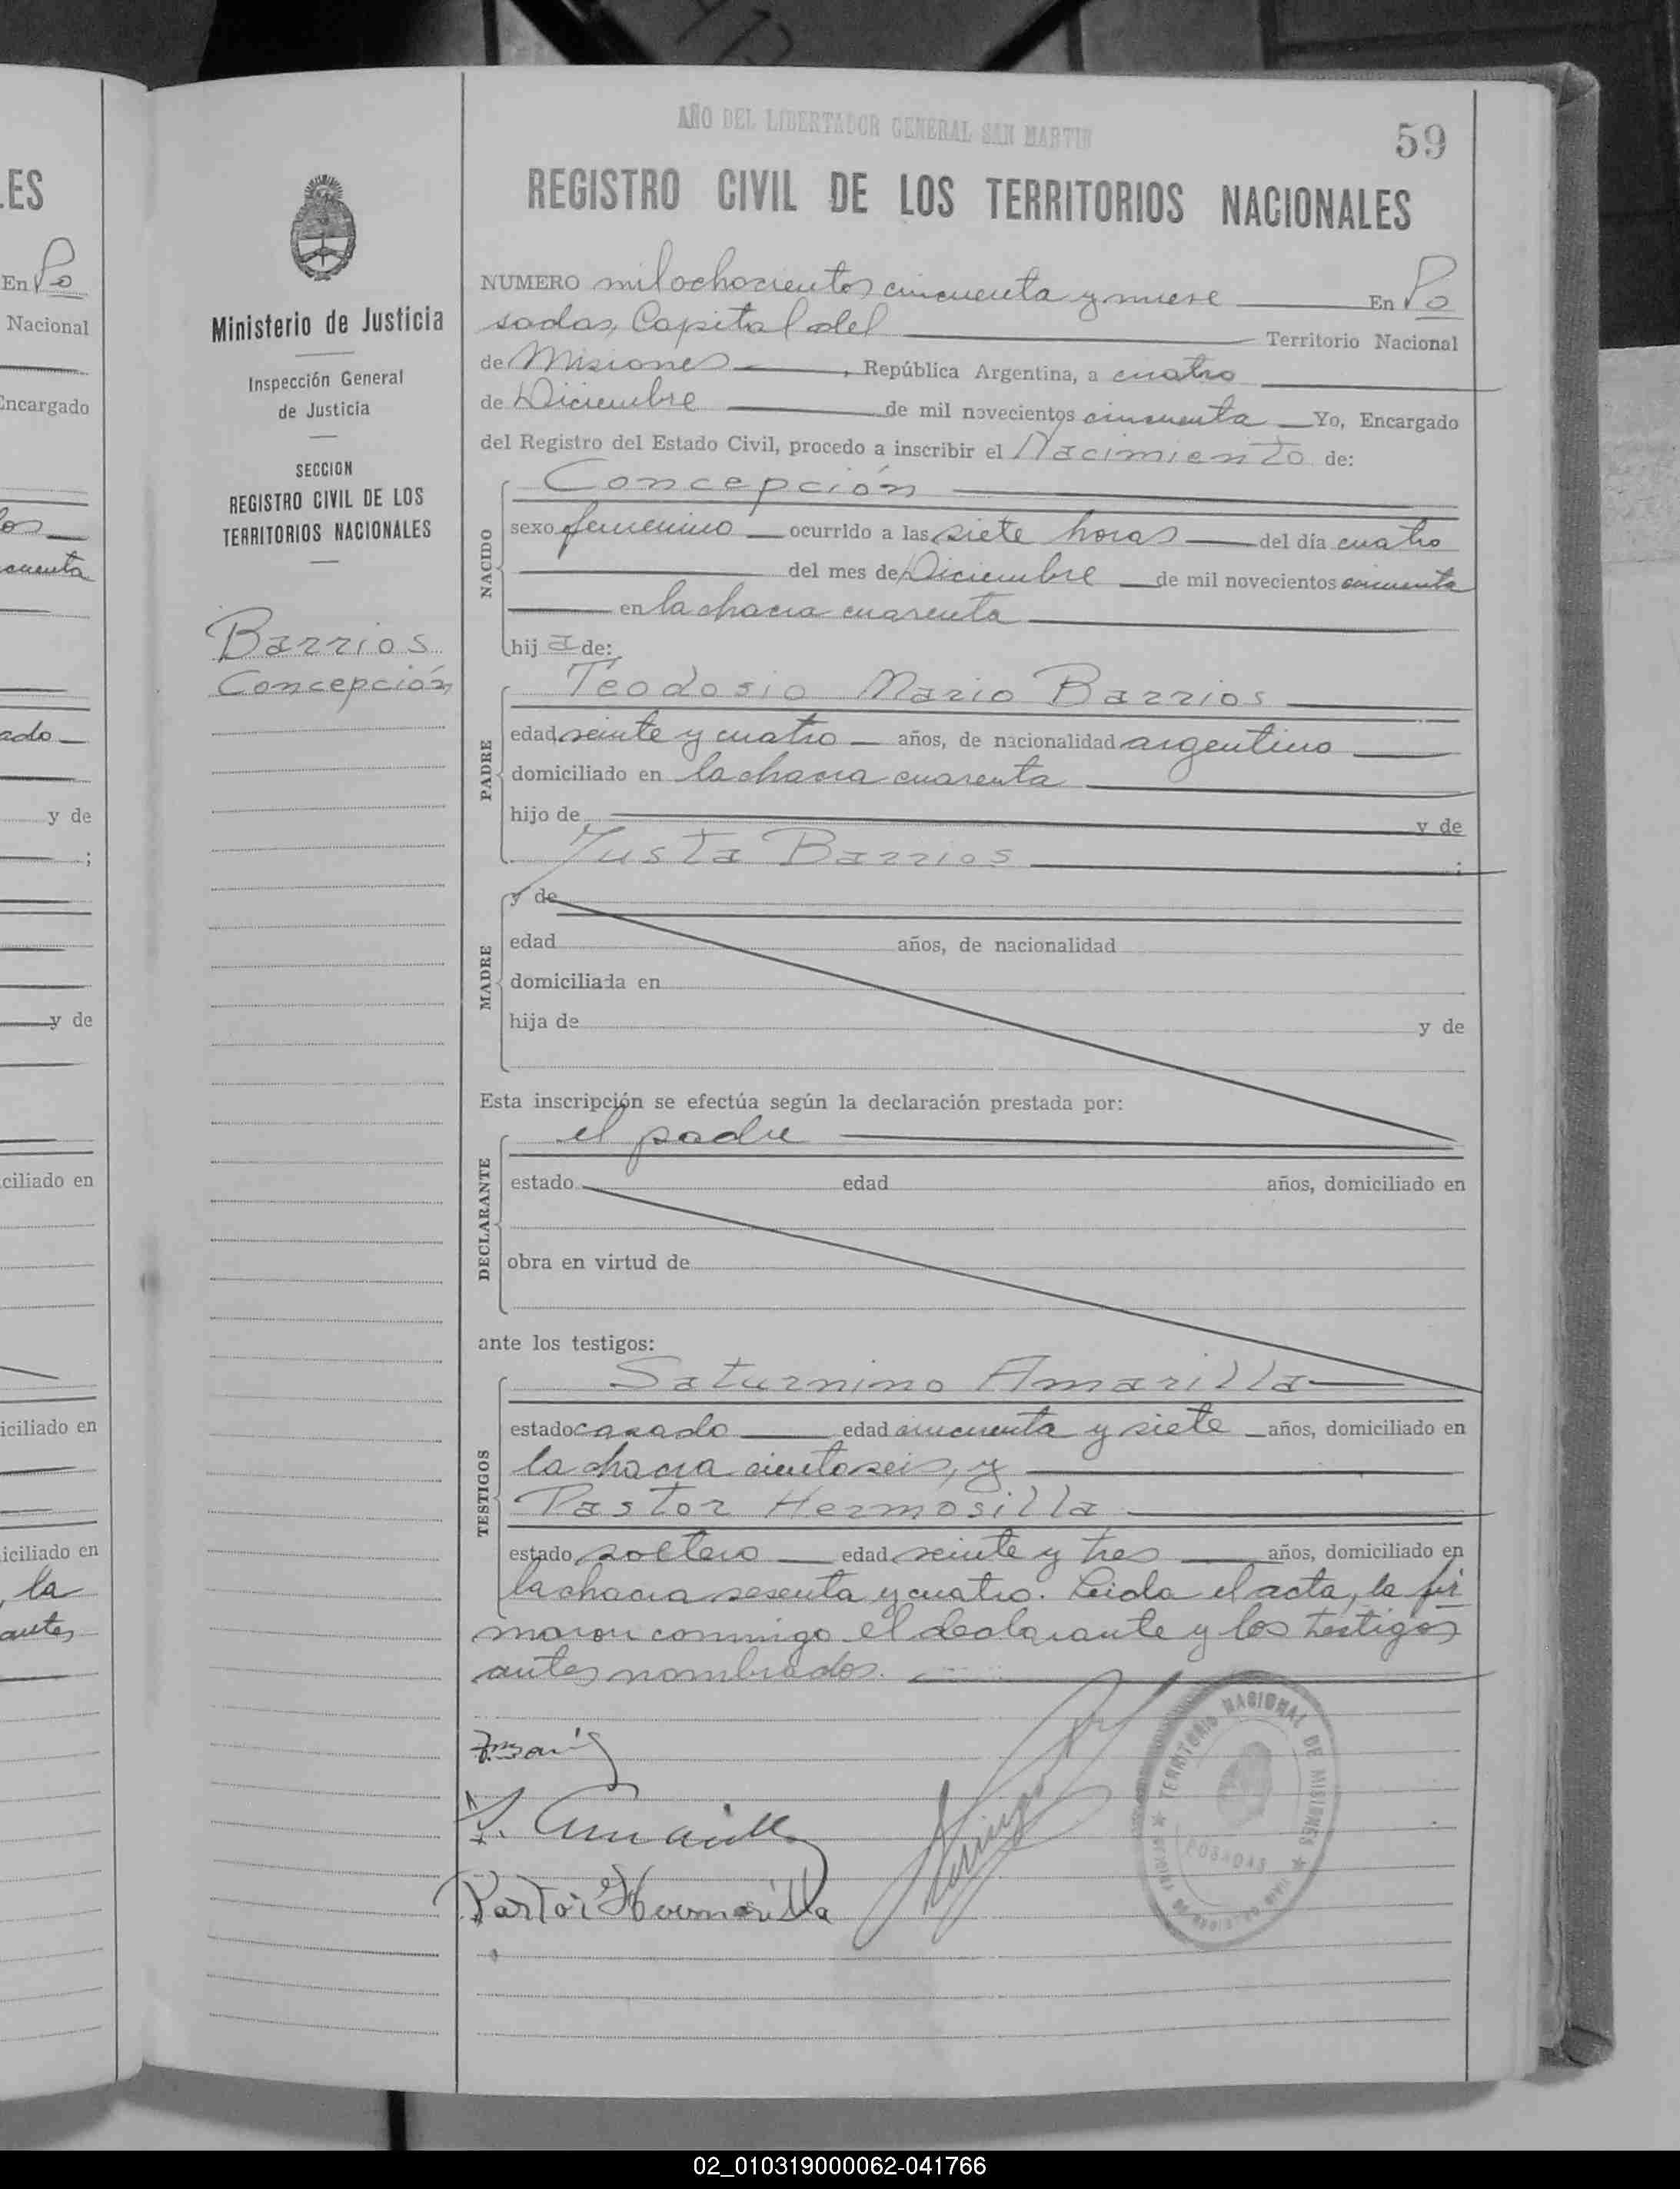 AÑO DEL LIBERTADOR GENERAL SAN MARTIN
59
REGISTRO CIVIL DE LOS TERRITORIOS NACIONALES
Ministerio de Justicia
Inspección General
de Justicia
SECCION
REGISTRO CIVIL DE LOS
TERRITORIOS NACIONALES
Barrios
Concepción
NUMERO mil ochocientos cincuenta y nueve En Po
sadas, Capital del Territorio Nacional
de Misiones, República Argentina, a cuatro
de Diciembre de mil novecientos cincuenta Yo, Encargado
del Registro del Estado Civil, procedo a inscribir el Nacimiento de:
NACIDO
Concepción
sexo femenino ocurrido a las siete horas del día cuatro
del mes de Diciembre de mil novecientos cincuenta
en la chacra cuarenta
hija de:
PADRE
Teodosio Mario Barrios
edad veinte y cuatro años, de nacionalidad argentino
domiciliado en la chacra cuarenta
hijo de y de
Justa Barrios ;
MADRE
y de
edad años, de nacionalidad
domiciliada en
hija de y de
Esta inscripción se efectúa según la declaración prestada por:
DECLARANTE
el padre
estado edad años, domiciliado en
obra en virtud de
ante los testigos:
TESTIGOS
Saturnino Amarilla
estado casado edad cincuenta y siete años, domiciliado en
la chacra ciento seis, y
Pastor Hermosilla
estado soltero edad veinte y tres años, domiciliado en
la chacra sesenta y cuatro. Leida el acta, la fir
maron conmigo el declarante y los testigos
antes nombrados.
S. Amarilla
Pastor Hermosilla
TERRITORIO NACIONAL DE MISIONES
POSADAS
ES
En Po
Nacional
Encargado
cuenta
ado
y de
;
y de
ciliado en
iciliado en
iciliado en
, la
antes
02_010319000062-041766